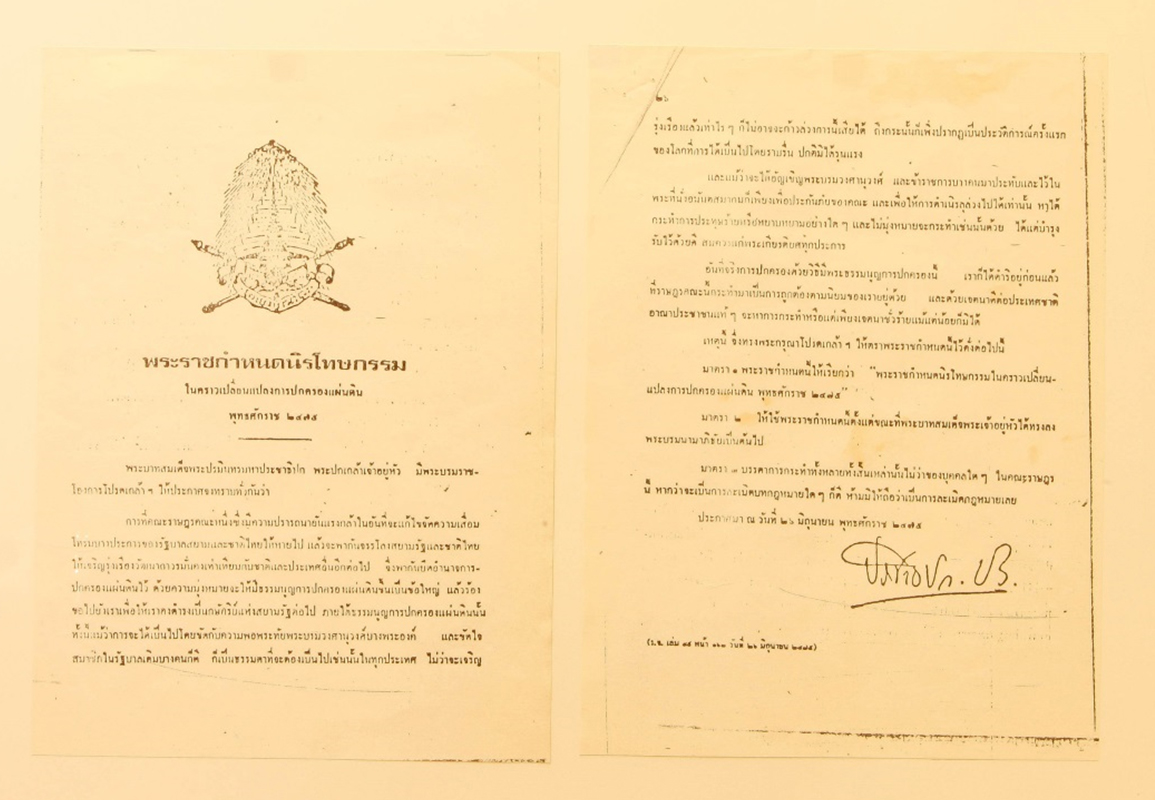 พระราชกำหนดนิรโทษกรรม
ในคราวเปลี่ยนแปลงการปกครองแผ่นดิน
พุทธศักราช ๒๔๗๕
พระบาทสมเด็จพระปรมินทรมหาประชาธิปก พระปกเกล้าเจ้าอยู่หัว มีพระบรมราช-
โองการโปรดเกล้า ฯ ให้ประกาศจงทราบทั่วกันว่า
การที่คณะราษฎรคณะหนึ่งซึ่งมีความปรารถนาอันแรงกล้าในอันที่จะแก้ไขขจัดความเสื่อม
โทรมบางประการของรัฐบาลสยามและชาติไทยให้หายไป แล้วจะพากันจรรโลงสยามรัฐและชาติไทย
ให้เจริญรุ่งเรืองวัฒนาถาวรมั่นคงเท่าเทียมกับชาติและประเทศอื่นอีกต่อไป จึ่งพากันยึดอำนาจการ-
ปกครองแผ่นดินไว้ ด้วยความมุ่งหมายจะให้มีธรรมนูญการปกครองแผ่นดินขึ้นเป็นข้อใหญ่ แล้วร้อง
ขอไปยังเราเพื่อให้เราคงดำรงเป็นกษัตริย์แห่งสยามรัฐต่อไป ภายใต้ธรรมนูญการปกครองแผ่นดินนั้น
ทั้งนี้แม้ว่าการจะได้เป็นไปโดยขัดกับความพอพระทัยพระบรมวงศานุวงศ์บางพระองค์ และขัดใจ
สมาชิกในรัฐบาลเดิมบางคนก็ดี ก็เป็นธรรมดาที่จะต้องเป็นไปเช่นนั้นในทุกประเทศ ไม่ว่าจะเจริญ
รุ่งเรืองแล้วเท่าไร ๆ ก็ไม่อาจจะก้าวล่วงการนี้เสียได้ ถึงกระนั้นก็เพิ่งปรากฏเป็นประวัติการณ์ครั้งแรก
ของโลกที่การได้เป็นไปโดยราบรื่น ปกติมิได้รุนแรง
และแม้ว่าจะได้อัญเชิญพระบรมวงศานุวงศ์ และข้าราชการบางคนมาประทับและไว้ใน
พระที่นั่งอนันตสมาคมก็เพียงเพื่อประกันภัยของคณะ และเพื่อให้การดำเนิรลุล่วงไปได้เท่านั้น หาได้
กระทำการประทุษร้ายหรือหยาบหยามอย่างใด ๆ และไม่มุ่งหมายจะกระทำเช่นนั้นด้วย ได้แต่บำรุง
รับไว้ด้วยดี สมควรแก่พระเกียรติยศทุกประการ
อันที่จริงการปกครองด้วยวิธีมีพระธรรมนูญการปกครองนี้ เราก็ได้ดำริอยู่ก่อนแล้ว
ที่ราษฎรคณะนี้กระทำมาเป็นการถูกต้องตามนิยมของเราอยู่ด้วย และด้วยเจตนาดีต่อประเทศชาติ
อาณาประชาชนแท้ ๆ จะหาการกระทำหรือแต่เพียงเจตนาชั่วร้ายแม้แต่น้อยก็มิได้
เหตุนี้ จึ่งทรงพระกรุณาโปรดเกล้า ฯ ให้ตราพระราชกำหนดนี้ไว้ดั่งต่อไปนี้
มาตรา ๑ พระราชกำหนดนี้ให้เรียกว่า "พระราชกำหนดนิรโทษกรรมในคราวเปลี่ยน-
แปลงการปกครองแผ่นดิน พุทธศักราช ๒๔๗๕"
มาตรา ๒ ให้ใช้พระราชกำหนดนี้ตั้งแต่ขณะที่พระบาทสมเด็จพระเจ้าอยู่หัวได้ทรงลง
พระบรมนามาภิธัยเป็นต้นไป
มาตรา ๓ บรรดาการกระทำทั้งหลายทั้งสิ้นเหล่านั้นไม่ว่าของบุคคลใด ๆ ในคณะราษฎร
นี้ หากว่าจะเป็นการละเมิดบทกฎหมายใด ๆ ก็ดี ห้ามมิให้ถือว่าเป็นการละเมิดกฎหมายเลย
ประกาศมา ณ วันที่ ๒๖ มิถุนายน พุทธศักราช ๒๔๗๕
ประชาธิปก. ปร.
(ร.จ. เล่ม ๔๙ หน้า ๑๖๓ วันที่ ๒๖ มิถุนายน ๒๔๗๕)